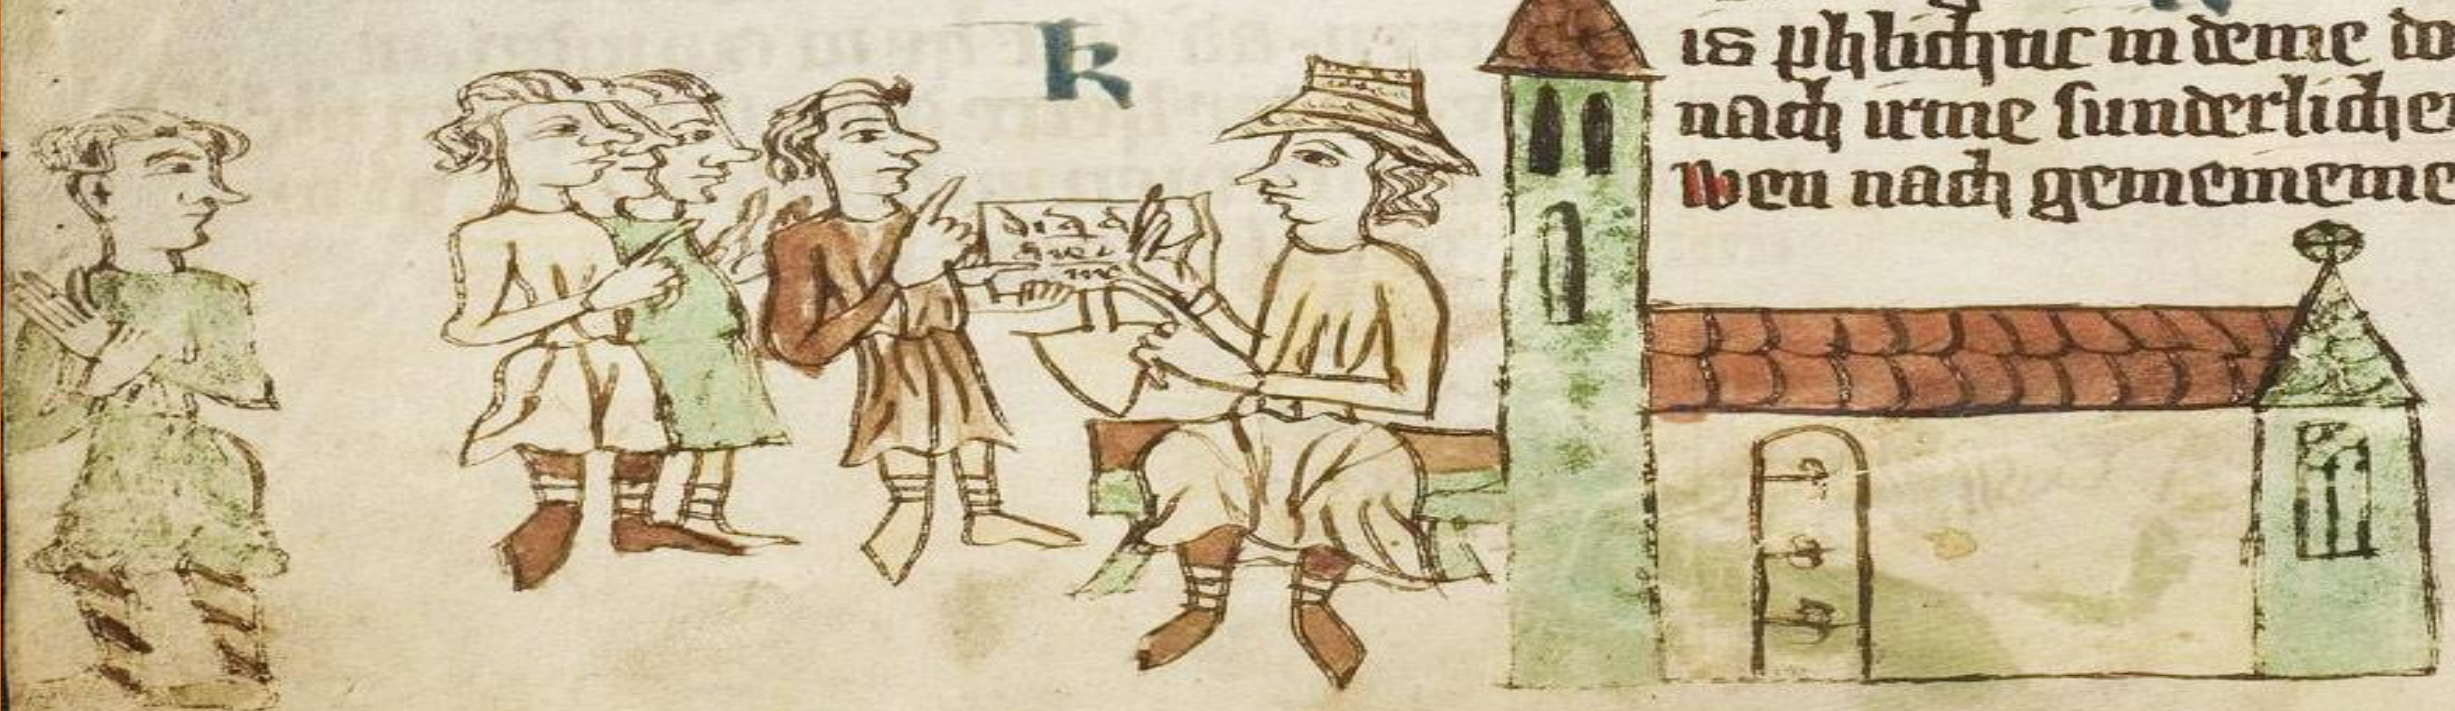 k
is phlichtic in deme do
nach irme sunderliche
Wen nach gemeineme